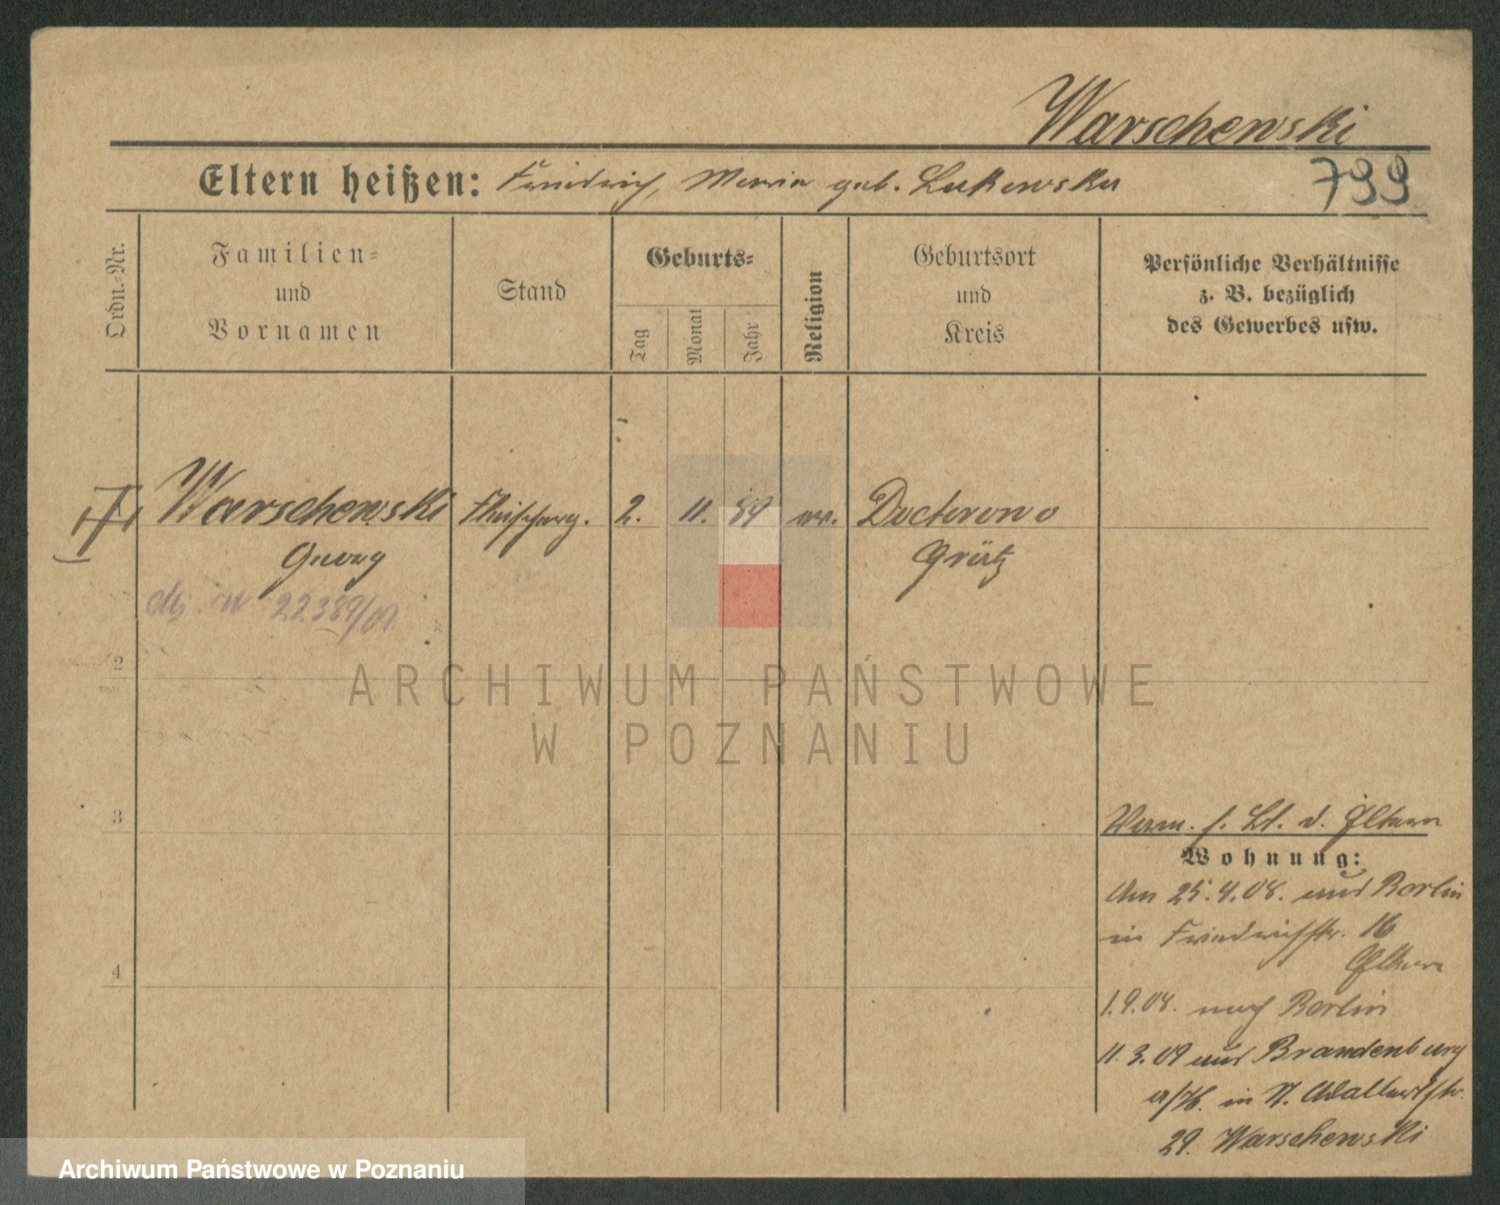 Warschewski
Eltern heißen: Friedrich, Maria geb. Lukowska
799
Ordn.-Nr.
Familien-
und
Vornamen
Stand
Geburts-
Tag
Monat
Jahr
Religion
Geburtsort
und
Kreis
Persönliche Verhältnisse
z. B. bezüglich
des Gewerbes usw.
Warschewski
Georg
2. 11.
Doctorowo
Grätz
22389/09
2
ARCHIWUM PAŃSTWOWE
W POZNANIU
3
4
d. Eltern
Wohnung:
Am 25.4.08. aus Berlin
in Friedrichstr. 16
Eltern
1.9.08. nach Berlin
11.3.09 aus Brandenburg
a/H. in N. Adalbertstr.
29. Warschewski
Archiwum Państwowe w Poznaniu